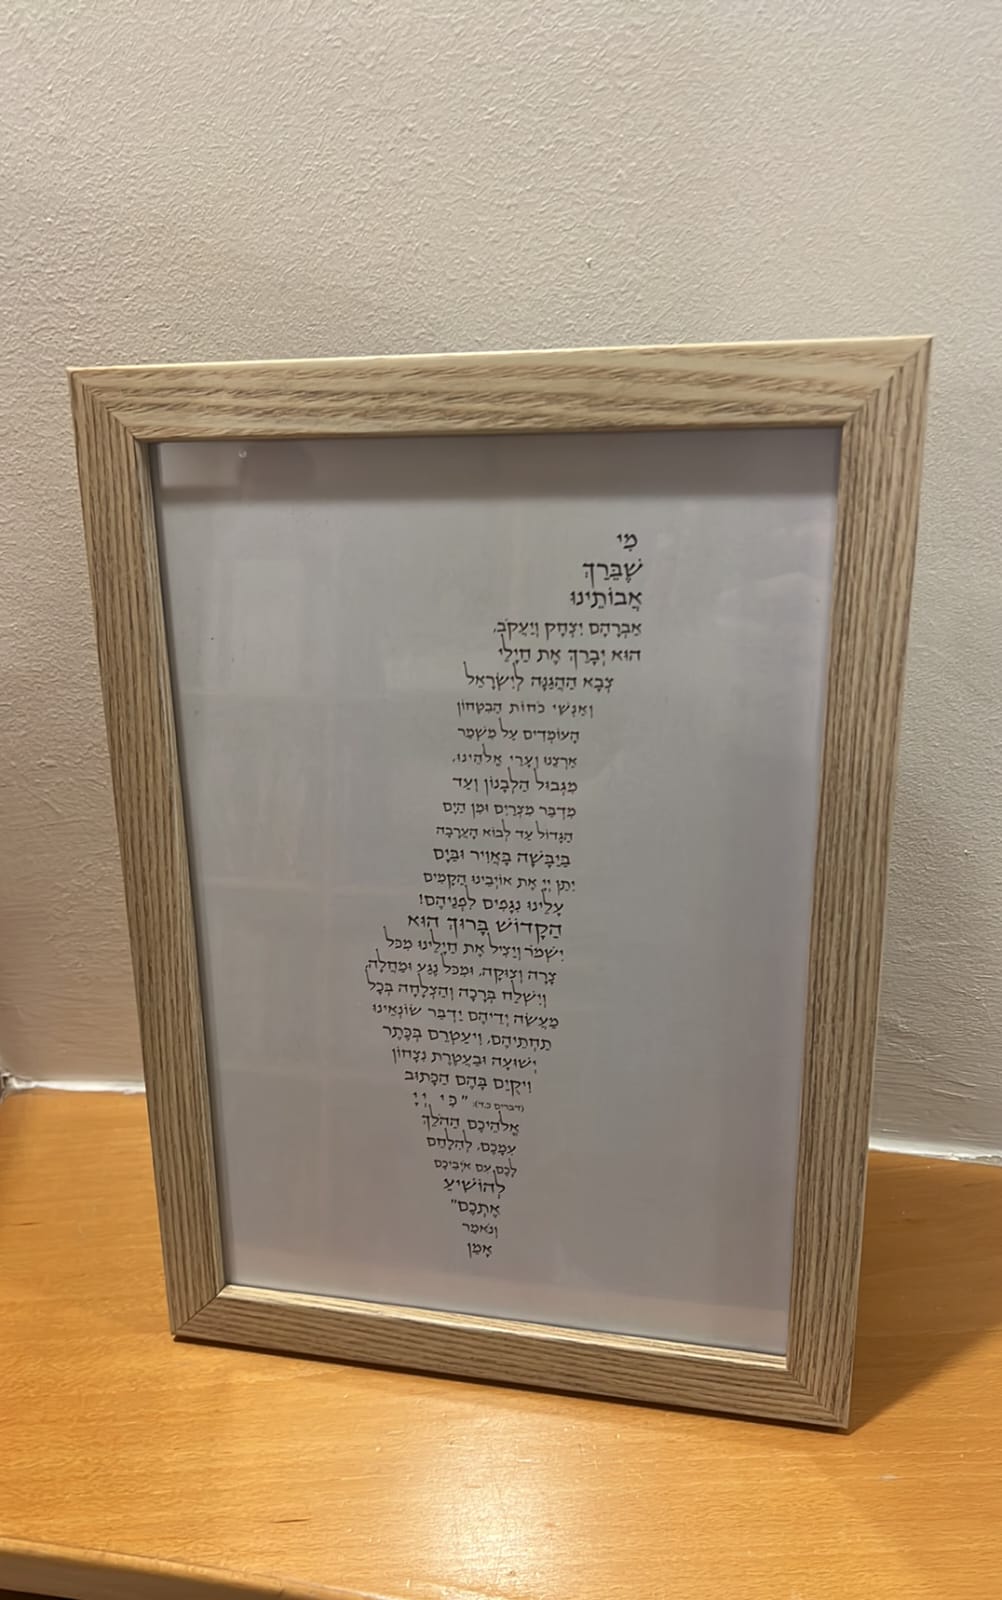 מִי
שֶׁבֵּרַךְ
אֲבוֹתֵינוּ
אַבְרָהָם יִצְחָק וְיַעֲקֹב,
הוּא יְבָרֵךְ אֶת חַיָּלֵי
צְבָא הַהֲגַנָּה לְיִשְׂרָאֵל
וְאַנְשֵׁי כֹּחוֹת הַבִּטָּחוֹן
הָעוֹמְדִים עַל מִשְׁמַר
אַרְצֵנוּ וְעָרֵי אֱלֹהֵינוּ,
מִגְּבוּל הַלְּבָנוֹן וְעַד
מִדְבַּר מִצְרַיִם וּמִן הַיָּם
הַגָּדוֹל עַד לְבוֹא הָעֲרָבָה
בַּיַּבָּשָׁה בָּאֲוִיר וּבַיָּם
יִתֵּן יְיָ אֶת אוֹיְבֵינוּ הַקָּמִים
עָלֵינוּ נִגָּפִים לִפְנֵיהֶם!
הַקָּדוֹשׁ בָּרוּךְ הוּא
יִשְׁמֹר וְיַצִּיל אֶת חַיָּלֵינוּ מִכָּל
צָרָה וְצוּקָה, וּמִכָּל נֶגַע וּמַחֲלָה,
וְיִשְׁלַח בְּרָכָה וְהַצְלָחָה בְּכָל
מַעֲשֵׂה יְדֵיהֶם יַדְבֵּר שׂוֹנְאֵינוּ
תַּחְתֵּיהֶם, וִיעַטְּרֵם בְּכֶתֶר
יְשׁוּעָה וּבַעֲטֶרֶת נִצָּחוֹן
וִיקֻיַּם בָּהֶם הַכָּתוּב
(דברים כ,ד): "כִּי יְיָ
אֱלֹהֵיכֶם הַהֹלֵךְ
עִמָּכֶם, לְהִלָּחֵם
לָכֶם עִם אֹיְבֵיכֶם
לְהוֹשִׁיעַ
אֶתְכֶם"
וְנֹאמַר
אָמֵן